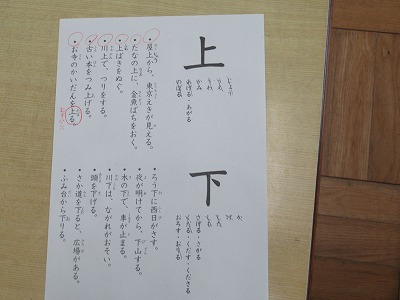 上
じょう
うえ
うわ
かみ
あげる・あがる
のぼる
・屋上から、東京えきが見える。
・たなの上に、金魚ばちをおく。
・上ばきをぬぐ。
・川上で、つりをする。
・古い本をつみ上げる。
・お寺のかいだんを上る。
下
か
げ
した
しも
もと
さげる・さがる
くだる・くだす・くださる
おろす・おりる
・ろう下に西日がさす。
・夜が明けてから、下山する。
・木の下で、車が止まる。
・川下は、ながれがおそい。
・頭を下げる。
・さか道を下ると、広場がある。
・ふみ台から下りる。